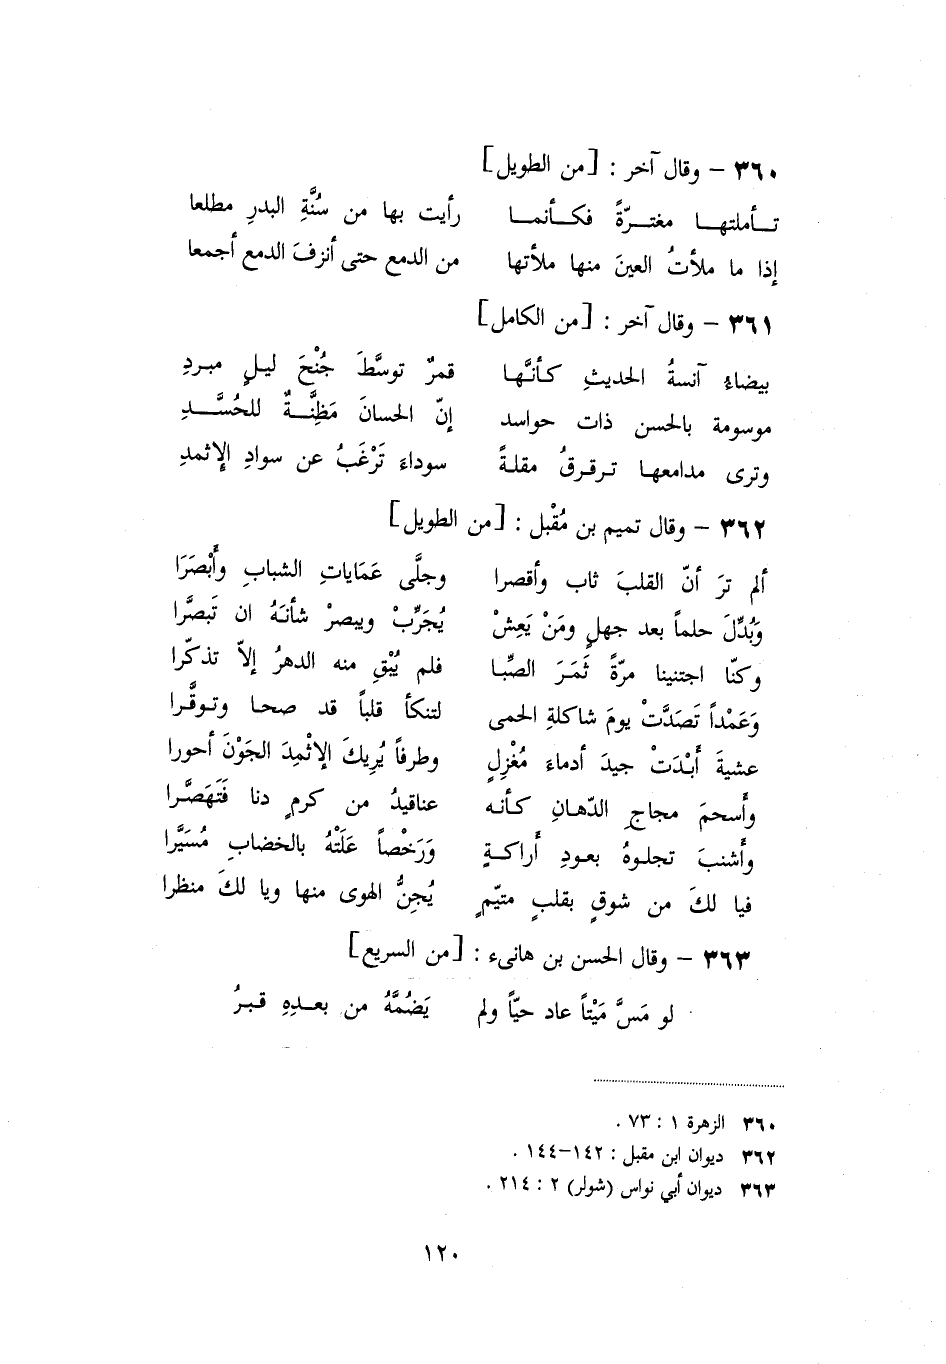 ٣٦٠ – وقال آخر : [من الطويل]
تـأملتهـا مغتـرّةً فكـأنمـا رأيت بها من سُنَّةِ البدرِ مطلعا
إذا ما ملأتُ العينَ منها ملأتها من الدمع حتى أنزفَ الدمع أجمعا
٣٦١ – وقال آخر : [من الكامل]
بيضاءُ آنسةُ الحديثِ كأنَّها قمرٌ توسَّطَ جُنْحَ ليلٍ مبردِ
موسومة بالحسن ذات حواسد إنّ الحسانَ مَظِنَّةٌ للحُسَّدِ
وترى مدامعها ترقرقُ مقلةً سوداءَ تَرْغَبُ عن سوادِ الإثمدِ
٣٦٢ – وقال تميم بن مُقْبل : [من الطويل]
ألم ترَ أنّ القلبَ ثاب وأقصرا وجلَّى عَمَاياتِ الشبابِ وأَبْصَرَا
وَبُدِّلَ حلماً بعد جهلٍ ومَنْ يَعِشْ يُجَرِّبْ ويبصرْ شأنَهُ ان تَبصَّرا
وكنّا اجتنينا مرّةً ثَمَرَ الصِّبا فلم يُبْقِ منه الدهرُ إلاّ تذكّرا
وَعَمْداً تَصَدَّتْ يومَ شاكلةِ الحمى لتنكأ قلباً قد صحا وتوقَّرا
عشيةَ أَبْدَتْ جيدَ أدماءَ مُغْزِلٍ وطرفاً يُرِيكَ الإثْمِدَ الجَوْنَ أحورا
وأَسحمَ مجاجِ الدّهانِ كأنه عناقيدُ من كرمٍ دنا فَتَهَصَّرا
وأَشنبَ تجلوهُ بعودِ أَراكةٍ وَرَخْصاً عَلَتْهُ بالخضابِ مُسَيَّرا
فيا لكَ من شوقٍ بقلبٍ متيّمٍ يُجِنُّ الهوى منها ويا لكَ منظرا
٣٦٣ – وقال الحسن بن هانىء : [من السريع]
لو مَسَّ مَيْتاً عاد حيّاً ولم يَضُمَّهُ من بعدِهِ قبرُ
٣٦٠ الزهرة ١ : ٧٣ .
٣٦٢ ديوان ابن مقبل : ١٤٢–١٤٤ .
٣٦٣ ديوان أبي نواس (شولر) ٢ : ٢١٤ .
١٢٠